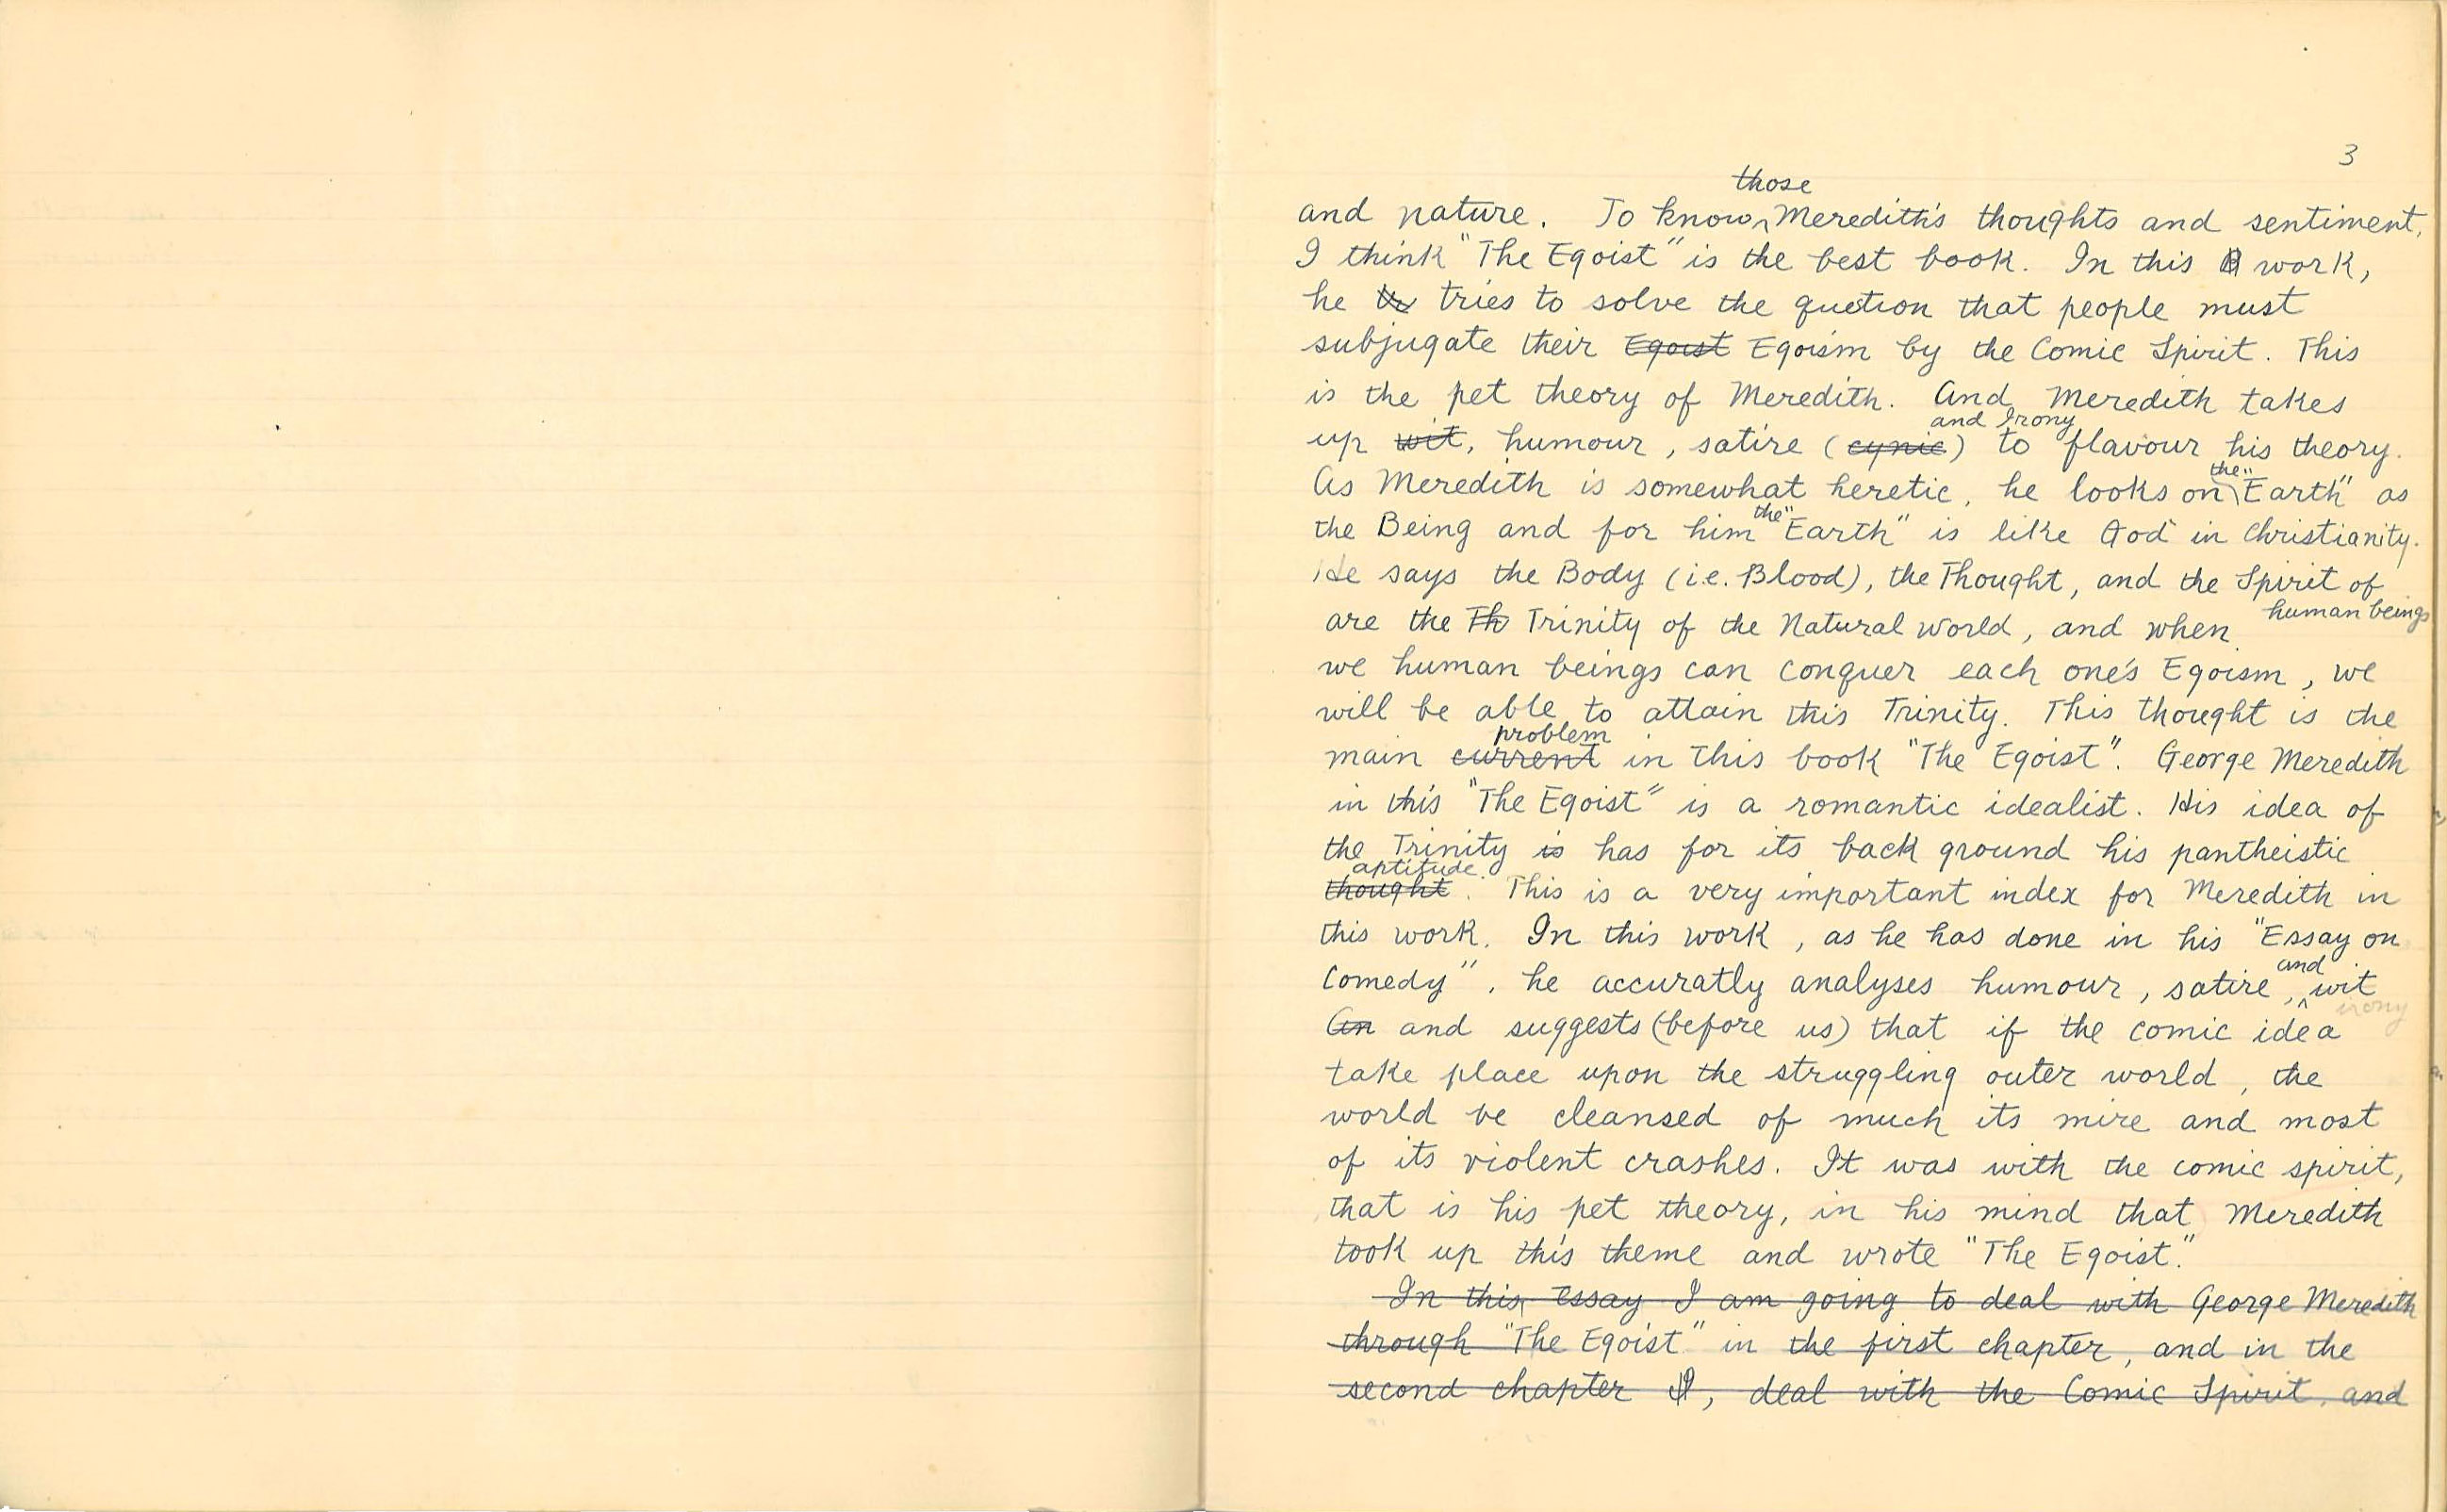 3
those
and nature. To know Meredith's thoughts and sentiment,
I think "The Egoist" is the best book. In this B work,
he tr tries to solve the quetion that people must
subjugate their Egoist Egoism by the Comic Spirit. This
is the pet theory of Meredith. And Meredith takes
and Irony
up wit, humour, satire (cynic) to flavour his theory.
the
As Meredith is somewhat heretic, he looks on "Earth" as
the
the Being and for him "Earth" is like God in Christianity.
He says the Body (i.e. Blood), the Thought, and the Spirit of
human beings
are the Th Trinity of the Natural world, and when
we human beings can conquer each one's Egoism, we
will be able to attain this Trinity. This thought is the
problem
main current in this book "The Egoist". George Meredith
in this "The Egoist" is a romantic idealist. His idea of
the Trinity is has for its back ground his pantheistic
aptitude
thought. This is a very important index for Meredith in
this work. In this work, as he has done in his "Essay on
and
Comedy", he accuratly analyses humour, satire, wit
irony
An and suggests (before us) that if the comic idea
take place upon the struggling outer world, the
world be cleansed of much its mire and most
of its violent crashes. It was with the comic spirit,
that is his pet theory, in his mind that Meredith
took up this theme and wrote "The Egoist."
In this essay I am going to deal with George Meredith
through "The Egoist" in the first chapter, and in the
second chapter I, deal with the Comic Spirit, and